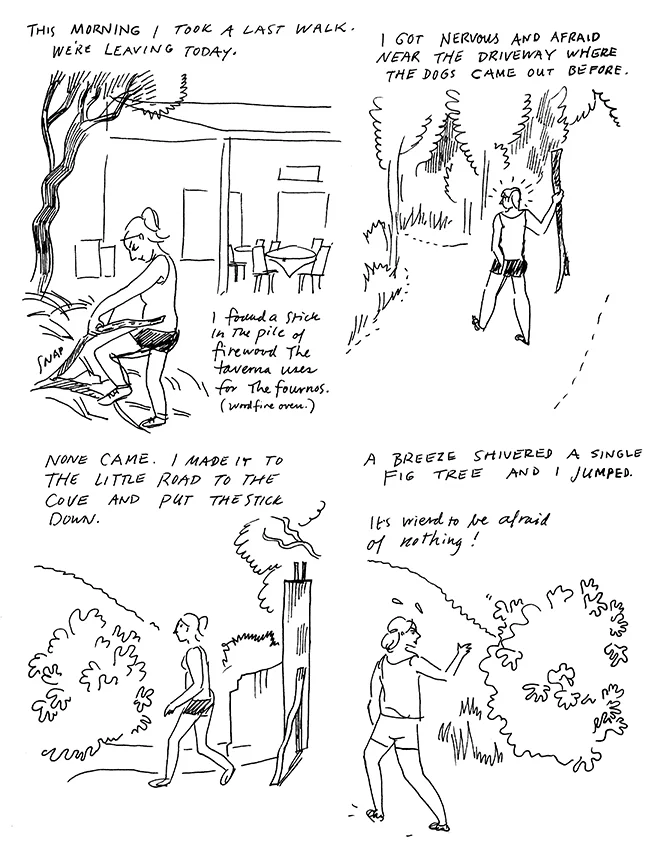 THIS MORNING I TOOK A LAST WALK.
WE'RE LEAVING TODAY.
SNAP
I found a stick
in the pile of
firewood the
taverna uses
for the fournos.
(wordfire oven.)
I GOT NERVOUS AND AFRAID
NEAR THE DRIVEWAY WHERE
THE DOGS CAME OUT BEFORE.
NONE CAME. I MADE IT TO
THE LITTLE ROAD TO THE
COVE AND PUT THE STICK
DOWN.
A BREEZE SHIVERED A SINGLE
FIG TREE AND I JUMPED.
It's wierd to be afraid
of nothing!